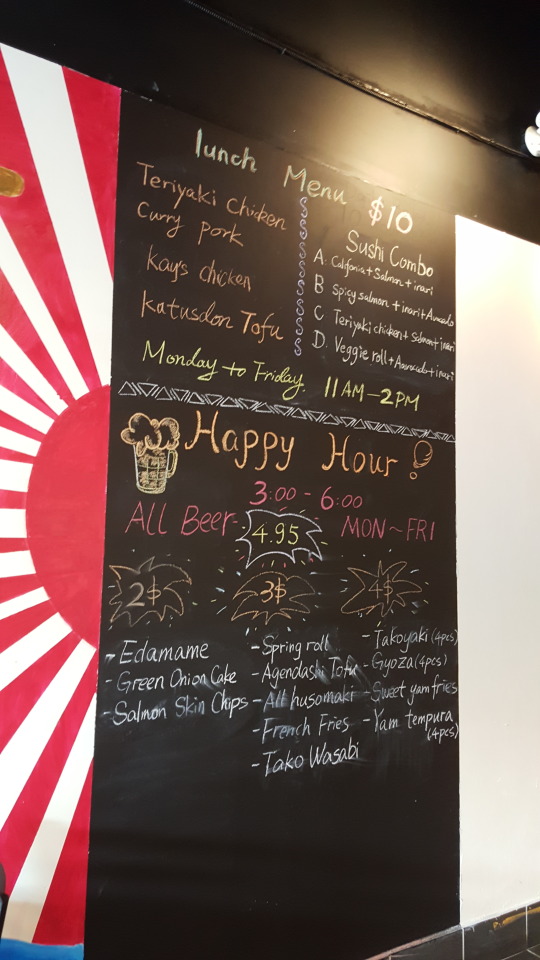 lunch Menu $10
Teriyaki Chicken
Curry pork
Kay's chicken
Katusdon Tofu
Sushi Combo
A. California + Salmon + inari
B Spicy salmon + inari + Avocado
C Teriyaki chicken + Salmon + inari
D. Veggie roll + Aavocado + inari
Monday to Friday. 11AM-2PM
Happy Hour!
3:00 - 6:00
All Beer- 4.95 MON~FRI
2$
- Edamame
- Green Onion Cake
- Salmon Skin Chips
3$
- Spring roll
- Agendashi Tofu
- All husomaki
- French Fries
- Tako Wasabi
4$
- Takoyaki (4pcs)
- Gyoza (4pcs)
- Sweet yam fries
- Yam tempura
(4pcs)